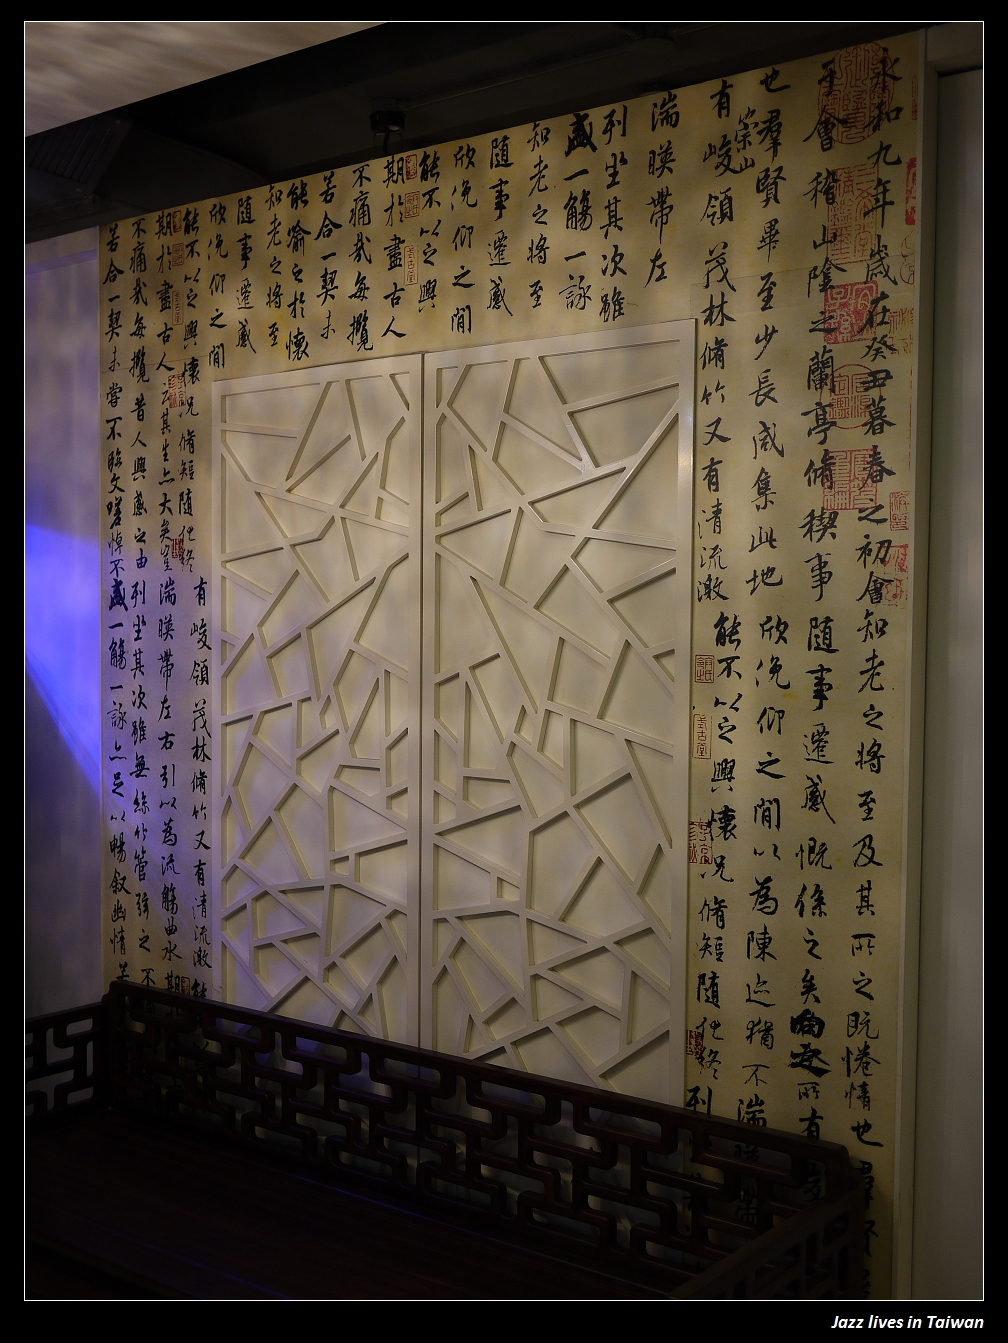 永和九年歲在癸丑暮春之初會知老之將至及其所之既惓情也羣賢
于會稽山陰之蘭亭脩稧事隨事遷感慨係之矣向之所有峻
也羣賢畢至少長咸集此地欣俛仰之間以為陳迹猶不湍暎帶
有崇山峻領茂林脩竹又有清流激能不以之興懷況脩短隨化終列
湍暎帶左
列坐其次雖
盛一觴一詠
知老之將至
隨事遷感
欣俛仰之間
能不以之興
期於盡古人
不痛哉每攬
若合一契未
能喻之於懷
知老之將至
隨事遷感
欣俛仰之間
能不以之興懷況脩短隨化終有峻領茂林脩竹又有清流激能
期於盡古人云其生亦大矣豈湍暎帶左右引以為流觴曲水期
不痛哉每攬昔人興感之由列坐其次雖無絲竹管弦之不
若合一契未嘗不臨文嗟悼不盛一觴一詠亦足以暢叙幽情若
Jazz lives in Taiwan